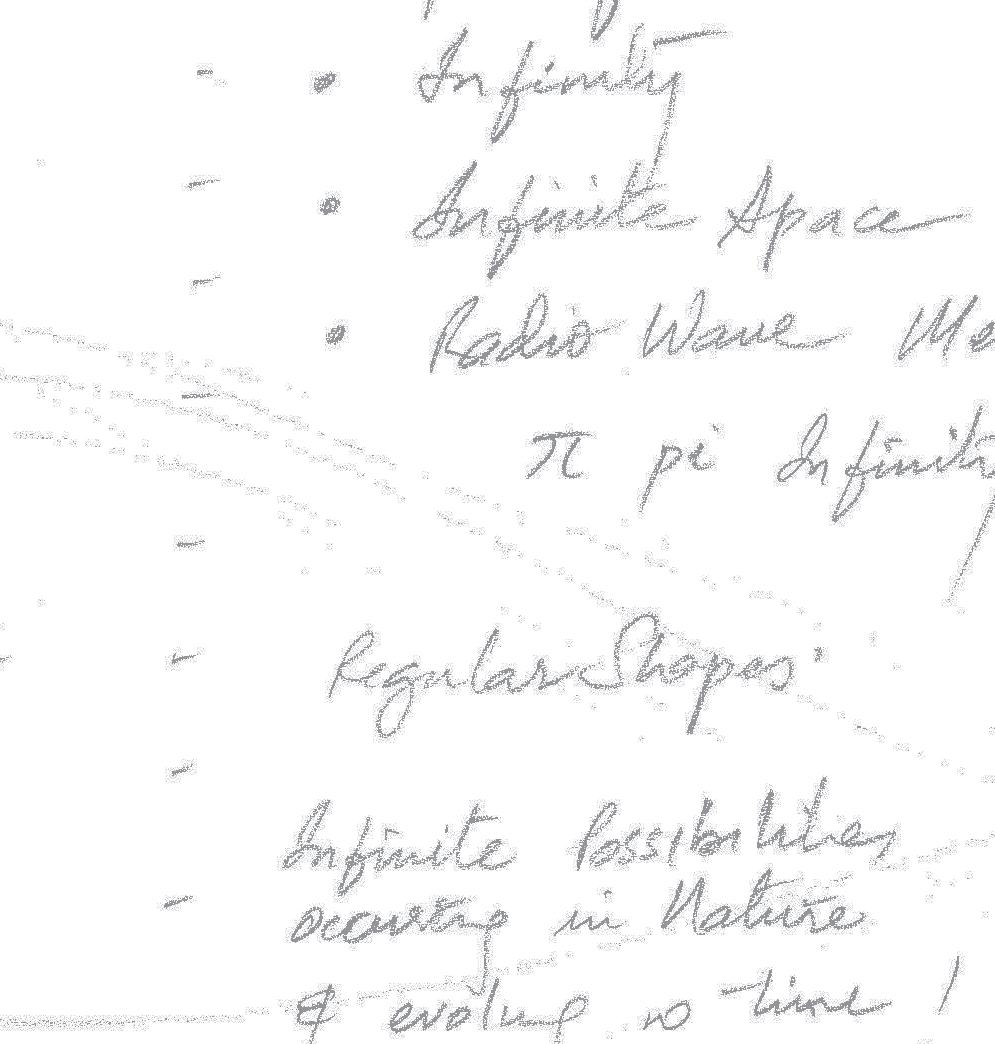 • Infinity
• Infinite Space
• Radio Wave Me
π pi Infinity
Regular Shapes
Infinite Possibilities
occurring in Nature
& evolving time !